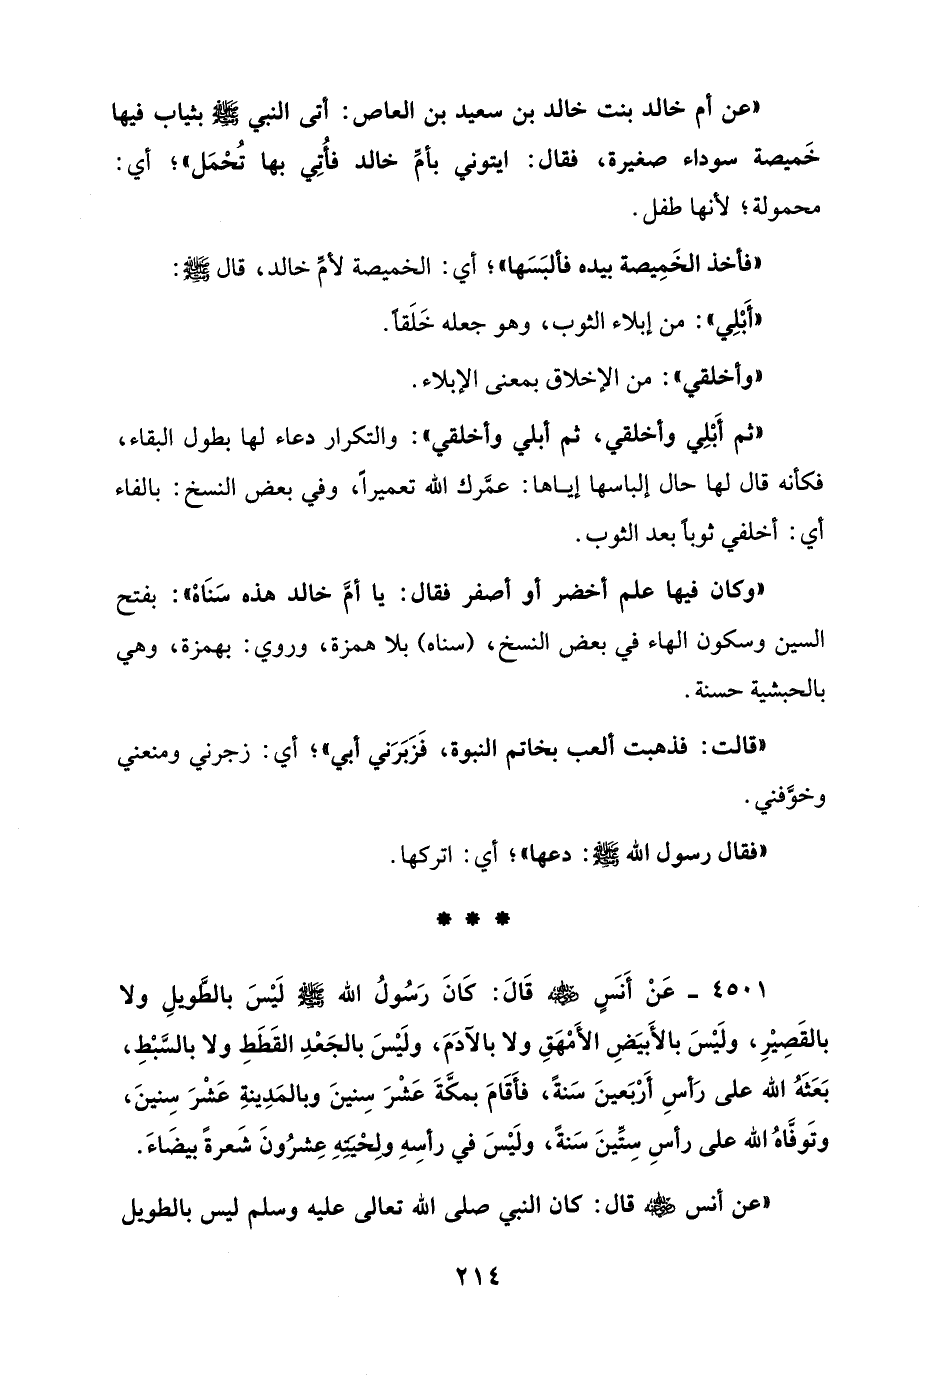 «عن أم خالد بنت خالد بن سعيد بن العاص: أتى النبي ﷺ بثياب فيها
خَميصة سوداء صغيرة، فقال: ايتوني بأمِّ خالد فأُتِي بها تُحْمَل»؛ أي:
محمولة؛ لأنها طفل.
«فأخذ الخَمِيصة بيده فألبَسَها»؛ أي: الخميصة لأمِّ خالد، قال ﷺ:
«أَبْلِي»: من إبلاء الثوب، وهو جعله خَلَقاً.
«وأخلقي»: من الإخلاق بمعنى الإبلاء.
«ثم أَبْلِي وأخلقي، ثم أبلي وأخلقي»: والتكرار دعاء لها بطول البقاء،
فكأنه قال لها حال إلباسها إياها: عمَّرك الله تعميراً، وفي بعض النسخ: بالفاء
أي: أخلفي ثوباً بعد الثوب.
«وكان فيها علم أخضر أو أصفر فقال: يا أمَّ خالد هذه سَنَاهْ»: بفتح
السين وسكون الهاء في بعض النسخ، (سناه) بلا همزة، وروي: بهمزة، وهي
بالحبشية حسنة.
«قالت: فذهبت ألعب بخاتم النبوة، فَزَبَرَني أبي»؛ أي: زجرني ومنعني
وخوَّفني.
«فقال رسول الله ﷺ: دعها»؛ أي: اتركها.
* * *
٤٥٠١ - عَنْ أَنَسٍ ﵁ قَالَ: كَانَ رَسُولُ الله ﷺ لَيْسَ بالطَّويلِ ولا
بالقَصِيْرِ، ولَيْسَ بالأَبيَضِ الأَمْهَقِ ولا بالآدَمَ، ولَيْسَ بالجَعْدِ القَطَطِ ولا بالسَّبْطِ،
بَعَثَهُ الله على رَأسِ أَرْبَعينَ سَنةً، فأَقَامَ بمكَّةَ عَشْرَ سِنينَ وبالمَدِينةِ عَشْرَ سِنينَ،
وتَوفَّاهُ الله على رأسِ سِتِّينَ سَنةً، ولَيْسَ في رأسِهِ ولِحْيَتِهِ عِشرُونَ شَعرةً بيضَاءَ.
«عن أنس ﵁ قال: كان النبي صلى الله تعالى عليه وسلم ليس بالطويل
٢١٤